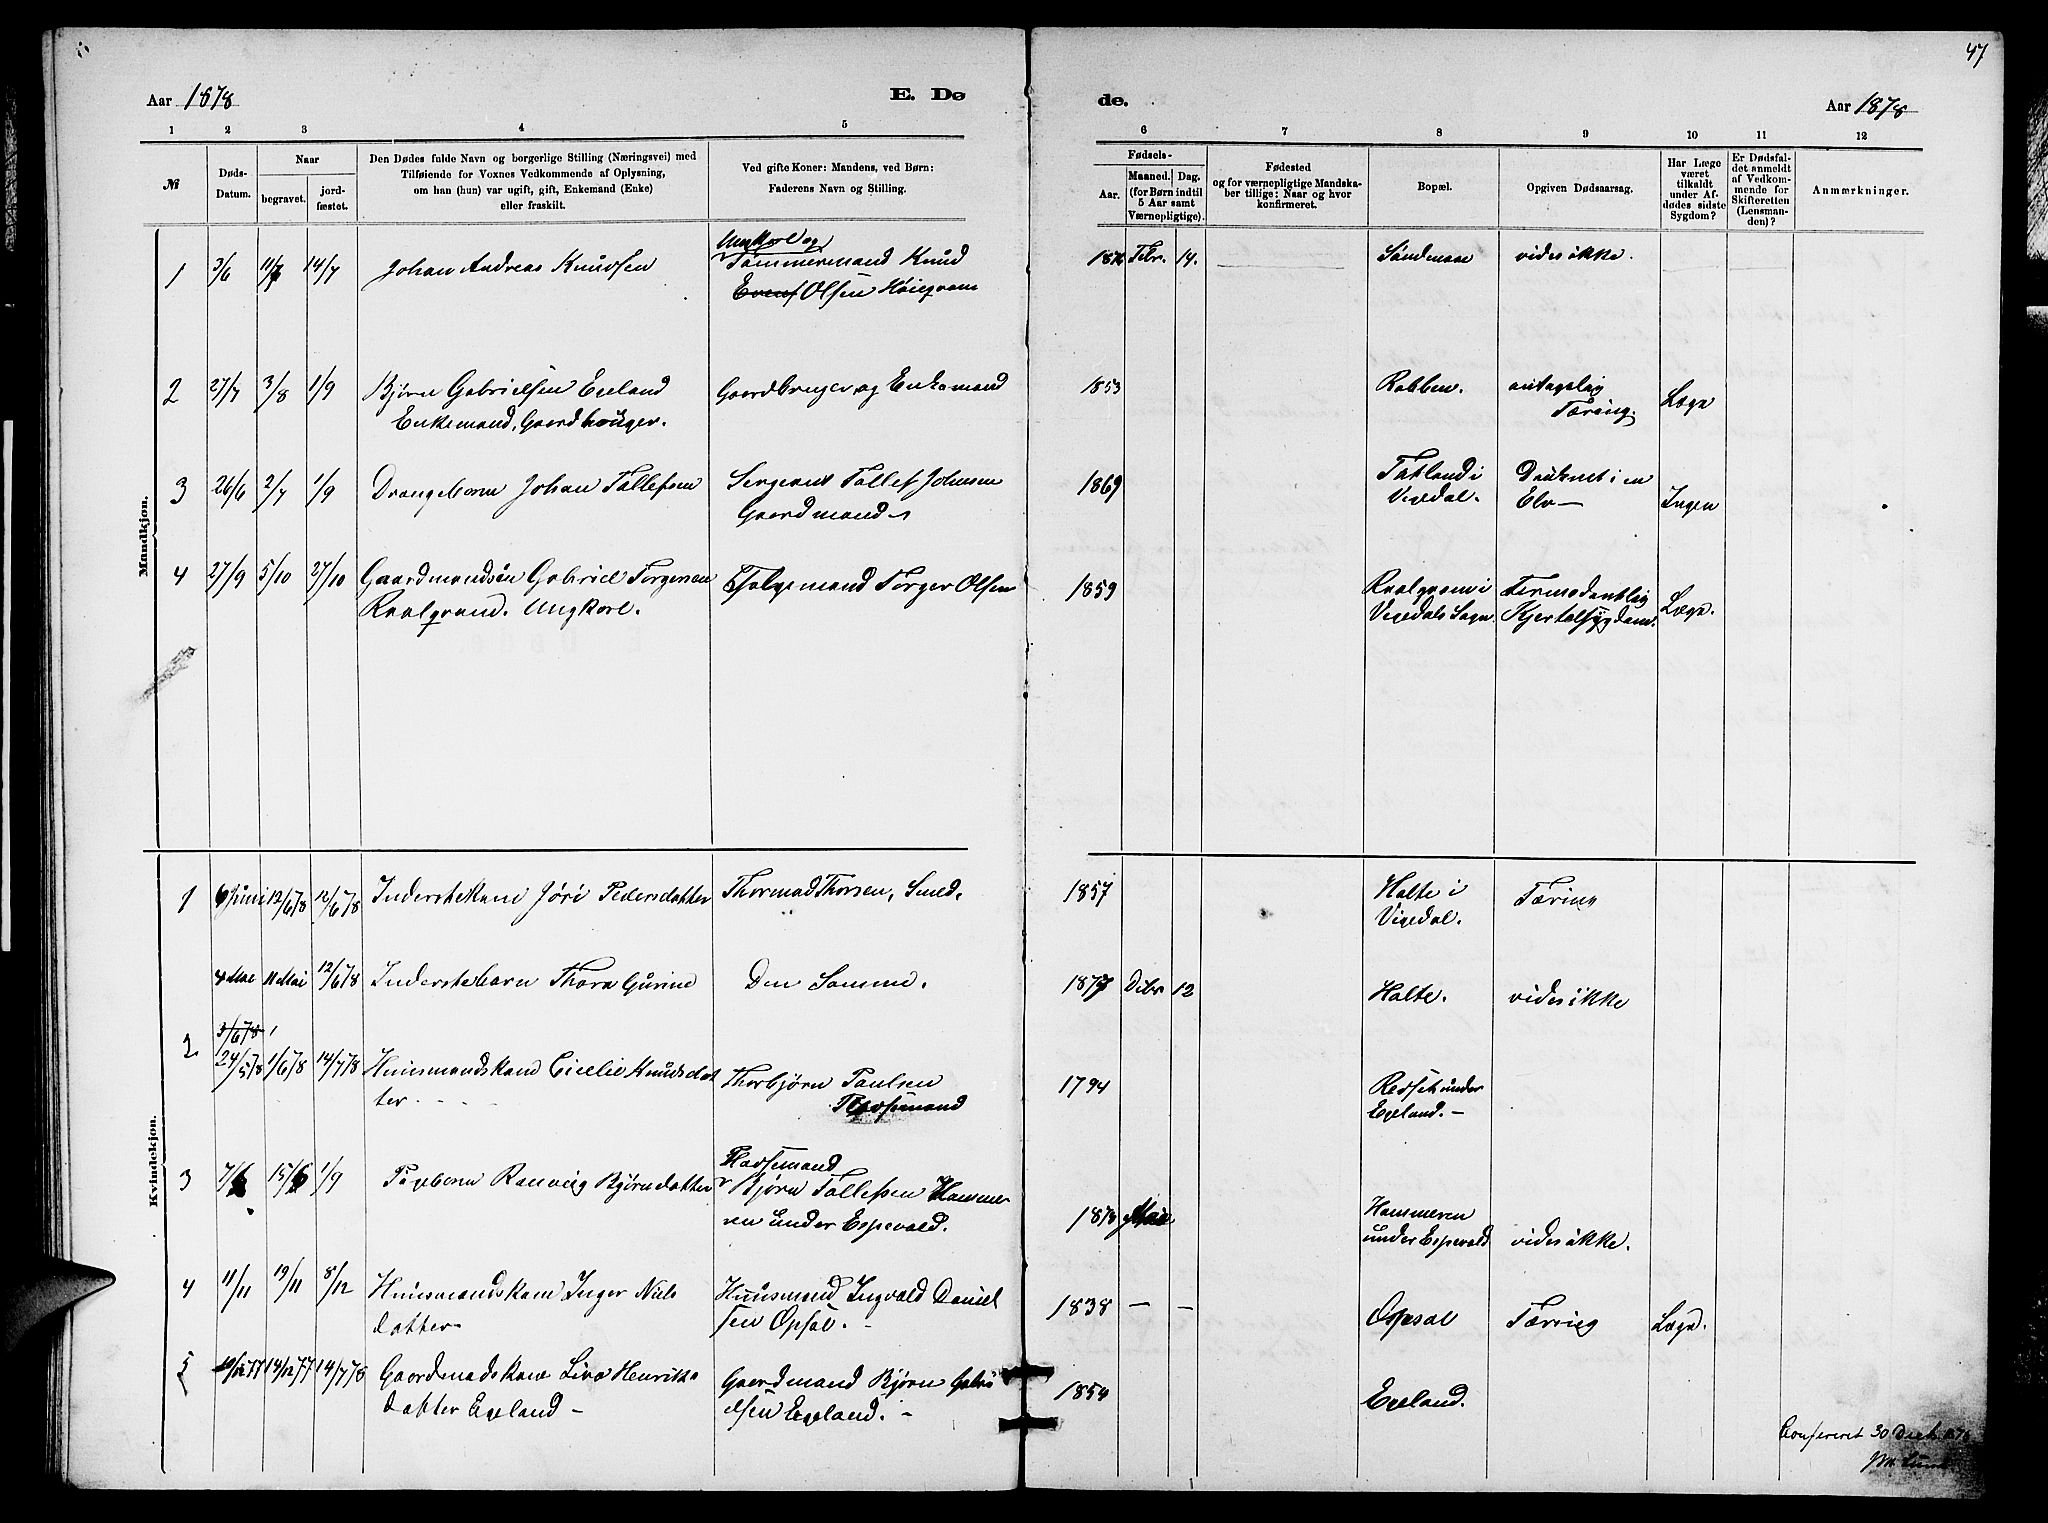 47
Aar 1878
E. Dø
de.
Aar 1878
1 2 3 4 5
6 7 8 9 10 11 12
№
Døds-
Datum.
Naar
begravet.
jord-
fæstet.
Den Dødes fulde Navn og borgerlige Stilling (Næringsvei) med
Tilføiende for Voxnes Vedkommende af Oplysning,
om han (hun) var ugift, gift, Enkemand (Enke)
eller fraskilt.
Ved gifte Koner: Mandens, ved Børn:
Faderens Navn og Stilling.
Fødsels-
Aar.
Maaned. Dag.
(for Børn indtil
5 Aar samt
Værnepligtige).
Fødested
og for værnepligtige Mandska-
ber tillige: Naar og hvor
konfirmeret.
Bopæl.
Opgiven Dødsaarsag.
Har Læge
været
tilkaldt
under Af-
dødes sidste
Sygdom?
Er Dødsfal-
det anmeldt
af Vedkom-
mende for
Skifteretten
(Lensman-
den)?
Anmærkninger.
Mandkjøn.
1 3/6 11/7 14/7 Johan Andreas Knudsen
Ungkarl og
Tømmermand Knud
Evens Olsen
Febr. 14. vides ikke.
2 27/7 3/8 1/9 Bjørn Gabrielsen Egeland
Enkemand, Gaardbruger.
Gaardbruger og Enkemand
1853 Robben. antagelig
Tæring. Læge
3 26/6 2/7 1/9 Drengebarn Johan Tollefsen
Sergeant Tollef Johnsen
Gaardmand
1869 Tatland i
Vegedal. Druknet i en
Elv — Ingen
4 27/9 5/10 27/10 Gaardmandsøn Gabriel Torgersen
Ungkarl.
Torger Olsen
1859
Vegedals Sogn Kjertelsygdom. Læge.
Kvindekjøn.
1 6 Juni 12/6 78 12/6 78 Inderstekone Jøri Pedersdatter
Thormod Thorsen, Smed.
1857 Holte i
Vigedal. Tæring
4 Mai 11 Mai 12/6 78 Inderstebarn Thora Gurine
Den Samme.
1877 Debr 12 Holte. vides ikke
3/6 78
2 24/5 78 1/6 78 14/7 78 Huusmandskone Cicelie Knudsdat
ter
Thorbjørn Paulsen
1794 under
Egeland. —
3 7/6 15/6 1/9 Pigebarn Ranveig Bjørnsdatter
Pladsemand
Bjørn Tollefsen Hamme
ren under Espevold.
1878 Mai Hammeren
under Espevold vides ikke.
4 11/11 19/11 8/12 Huusmandskone Inger Niels
datter
Huusmand Ingvald Daniel
sen Opsal. —
1838 — — Opsal Tæring Læge.
5 10/12 77 14/12 77 14/7 78 Gaardmandskone Live Henriks
datter Egeland —
Gaardmand Bjørn Gabri
elsen Egeland. —
1854 Egeland.
Confereret 30 Decb. 1878